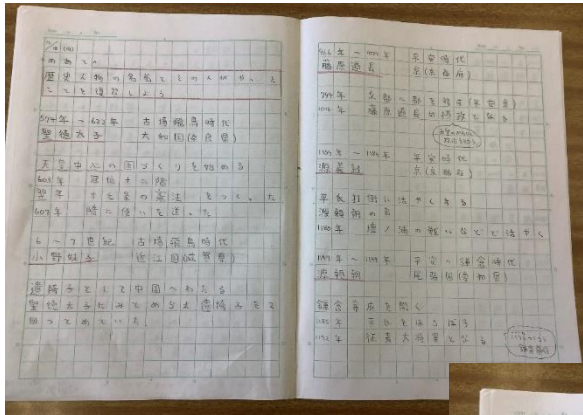 めあて。
歴史人物の名前とその人がやった
ことを復習しよう
574年～622年 古墳飛鳥時代
聖徳太子 大和国(奈良県)
天皇中心の国づくりを始める
603年 冠位十二階
翌年 十七条の憲法 をつくった
607年 隋に使いを送った
6～7世紀 古墳飛鳥時代
小野妹子 近江国(滋賀県)
遣隋使として中国へわたる
聖徳太子にみとめられ遣隋使をま
966年～1027年 平安時代
藤原道長 京(京都府)
794年 京都へ都を移す(平安京)
1016年 藤原道長が摂政となる
1159年～1189年 平安時代
源義経 京(京都府)
平氏打倒に活やくする
源頼朝の弟
1185年 壇ノ浦の戦いなどで活やく
1147年～1199年 平安～鎌倉時代
源頼朝 尾張国(愛知県)
鎌倉幕府を開く
1185年 平氏をほろぼす
1192年 征夷大将軍となる